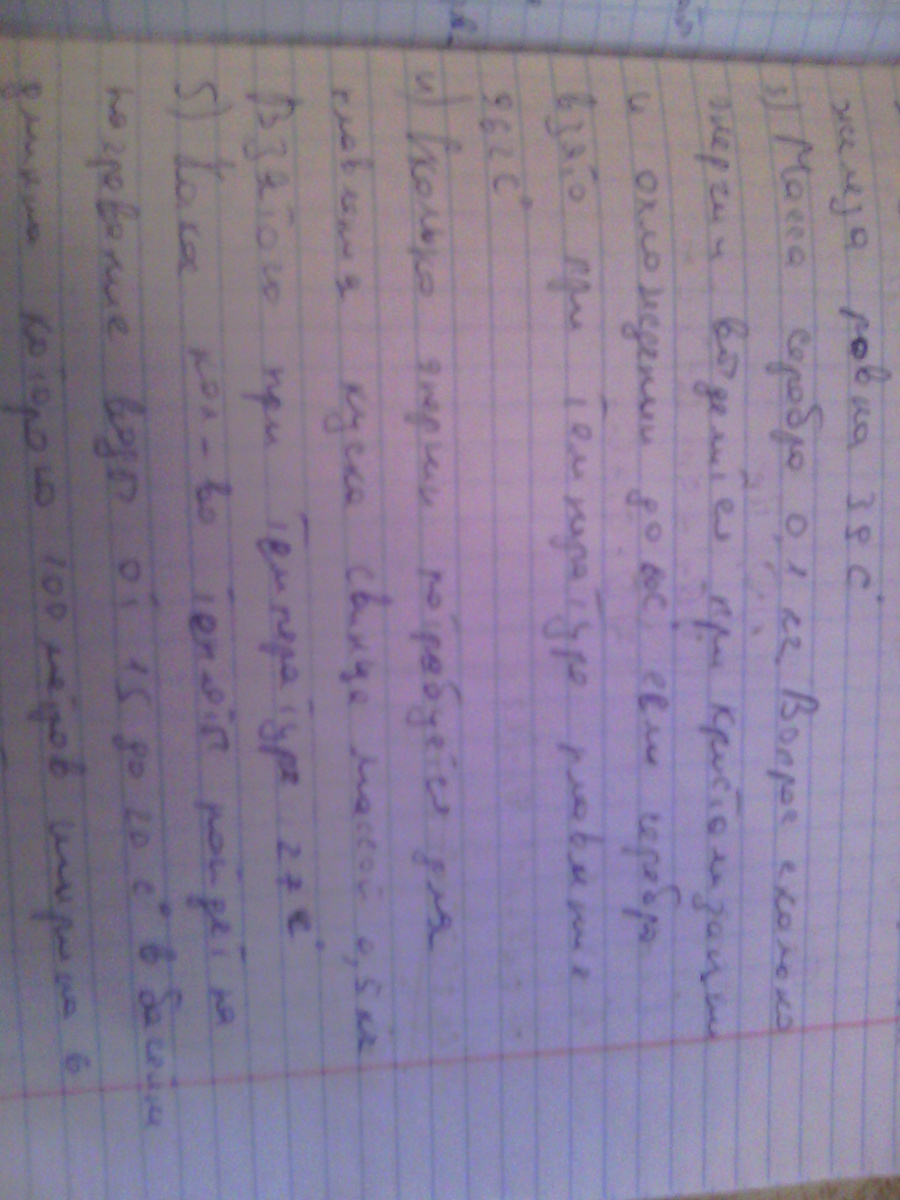 железа ровна 39 С°
3) Масса серебро 0,1 кг Вопрос сколоко
энергии выделится при кристолизации
и охлождении до 0С, если серебро
взято при темпратуре плавление
962 С°
4) Сколько энергии потребуется для
плавления куска свинца массой 0,5 кг
Взятого при температуре 27 С°
5) Какое кол-во теплоты пойдет на
погревание воды от 15 до 20 С° в басейн
длинна которого 100 метров ширина 6